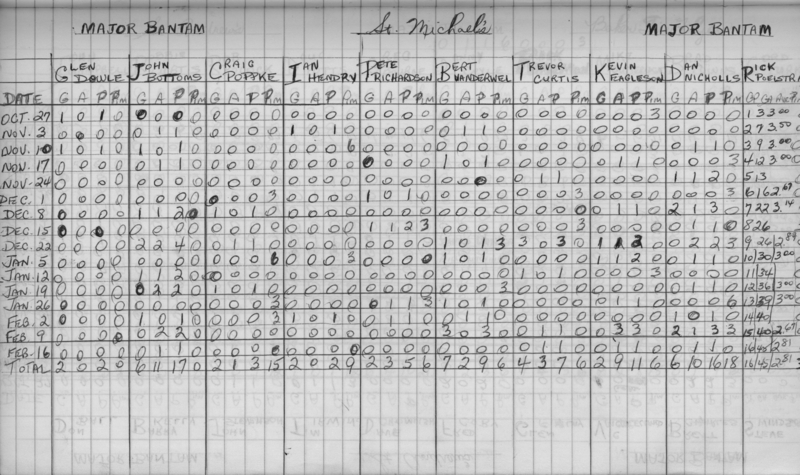 MAJOR BANTAM St. Michael's MAJOR BANTAM
GLEN DOULE JOHN BOTTOMS CRAIG POPPKE IAN HENDRY PETE RICHARDSON BERT VANDERWEL TREVOR CURTIS KEVIN EAGLESON DAN NICHOLLS RICK POELSTRA
DATE G A P Pim G A P Pim G A P Pim G A P Pim G A P Pim G A P Pim G A P Pim G A P Pim G A P Pim
OCT. 27 1 0 1 0 0 0 0 0 0 0 0 0 0 0 0 0 0 0 0 0 0 0 0 0 0 0 0 0 0 0 0 3 0 0 0 0 1 3 3.00
NOV. 3 0 0 0 0 0 1 1 0 0 0 0 0 1 0 1 0 0 0 0 0 0 1 1 0 0 0 0 0 0 0 0 0 0 0 0 0 2 7 3.50
NOV. 10 1 0 1 0 1 0 1 0 0 0 0 0 0 0 0 6 0 0 0 0 0 0 0 0 0 0 0 0 0 0 0 0 0 1 1 0 3 9 3.00
NOV. 17 0 0 0 0 0 1 1 0 0 0 0 0 0 0 0 0 0 0 0 0 1 0 1 0 0 0 0 0 0 1 1 0 0 0 0 3 4 12 3.00
NOV. 24 0 0 0 0 0 0 0 0 0 0 0 0 0 0 0 0 0 0 0 0 0 0 0 0 0 1 1 0 0 0 0 0 1 1 2 0 5 13
DEC. 1 0 0 0 0 0 0 0 0 0 0 0 3 0 0 0 0 1 0 1 0 0 0 0 0 0 0 0 3 0 0 0 0 0 0 0 3 6 16 2.67
DEC. 8 0 0 0 0 1 1 2 0 1 0 1 0 0 0 0 0 0 0 0 0 0 0 0 0 0 0 0 0 0 1 1 0 2 1 3 0 7 22 3.14
DEC. 15 0 0 0 0 0 0 0 0 0 0 0 0 0 0 0 0 1 1 2 3 0 0 0 0 0 0 0 3 0 0 0 0 0 1 1 0 8 26
DEC. 22 0 0 0 0 2 2 4 0 0 1 1 0 0 0 0 0 0 0 0 0 1 0 1 3 3 0 3 0 1 1 2 0 0 2 2 3 9 26 2.89
JAN. 5 0 0 0 0 0 0 0 0 0 0 0 6 0 0 0 3 0 0 0 0 0 1 1 0 0 0 0 0 1 1 2 0 0 1 1 0 10 30 3.00
JAN. 12 0 0 0 0 1 1 2 0 0 0 0 0 0 0 0 0 0 0 0 0 0 0 0 0 1 0 1 0 0 0 0 3 0 0 0 0 11 34
JAN. 19 0 0 0 0 0 2 2 0 1 0 1 0 0 0 0 0 0 0 0 0 0 0 0 3 0 0 0 0 0 0 0 0 0 1 1 0 12 36 3.00
JAN. 26 0 0 0 0 0 0 0 0 0 0 0 3 0 0 0 0 0 1 1 3 1 0 1 0 0 0 0 0 0 1 1 0 0 0 0 6 13 39 3.00
FEB. 2 0 0 0 0 1 0 1 0 0 0 0 3 1 0 1 0 0 1 1 0 1 0 1 0 0 0 0 0 0 0 0 0 1 0 1 0 14 40
FEB. 9 0 0 0 0 0 2 2 0 0 0 0 0 0 0 0 0 0 0 0 0 3 0 3 0 0 1 1 0 0 3 3 0 2 1 3 3 15 40 2.67
FEB. 16 0 0 0 0 0 1 1 0 0 0 0 0 0 0 0 0 0 0 0 0 0 0 0 0 0 1 1 0 0 1 1 0 0 1 1 0 16 45 2.81
TOTAL 2 0 2 0 6 11 17 0 2 1 3 15 2 0 2 9 2 3 5 6 7 2 9 6 4 3 7 6 2 9 11 6 6 10 16 18 16 45 2.81